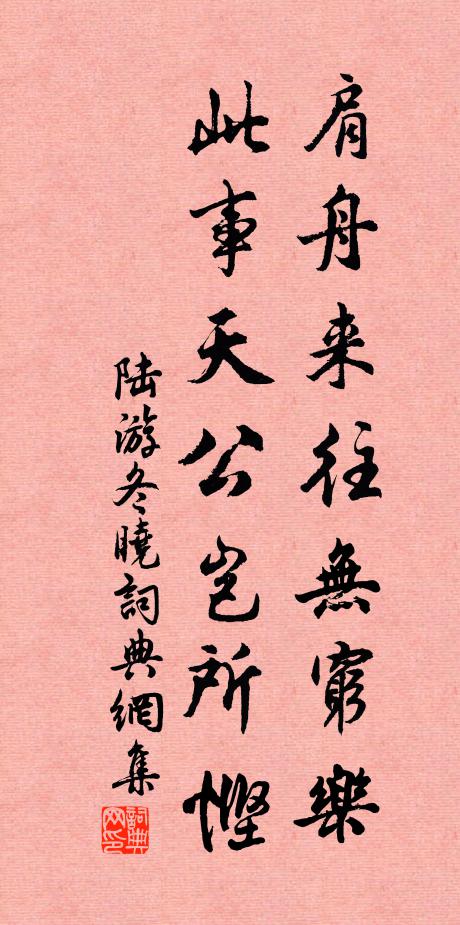 扁舟来往無窮樂
此事天公豈所慳
陸游冬曉詞典網集
詞典
网印